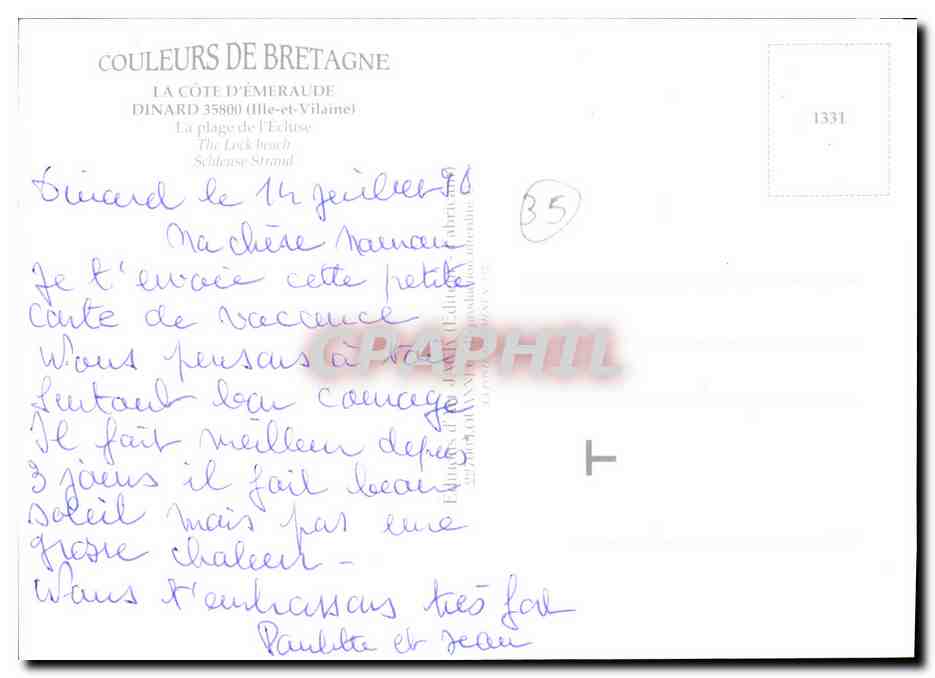 COULEURS DE BRETAGNE
LA CÔTE D'ÉMERAUDE
DINARD 35800 (Ille-et-Vilaine)
La plage de l'Ecluse
The Lock beach
Schleuse Strand
1331
35
Dinard le 14 juillet 98
Ma chère Maman
Je t'envoie cette petite
carte de vacance
Nous pensons à toi
Surtout bon courage
Il fait meilleur depuis
3 jours il fait beau
soleil mais pas une
grosse chaleur -
Nous t'embrassons très fort
Paulette et Jean
CPAPHIL
T